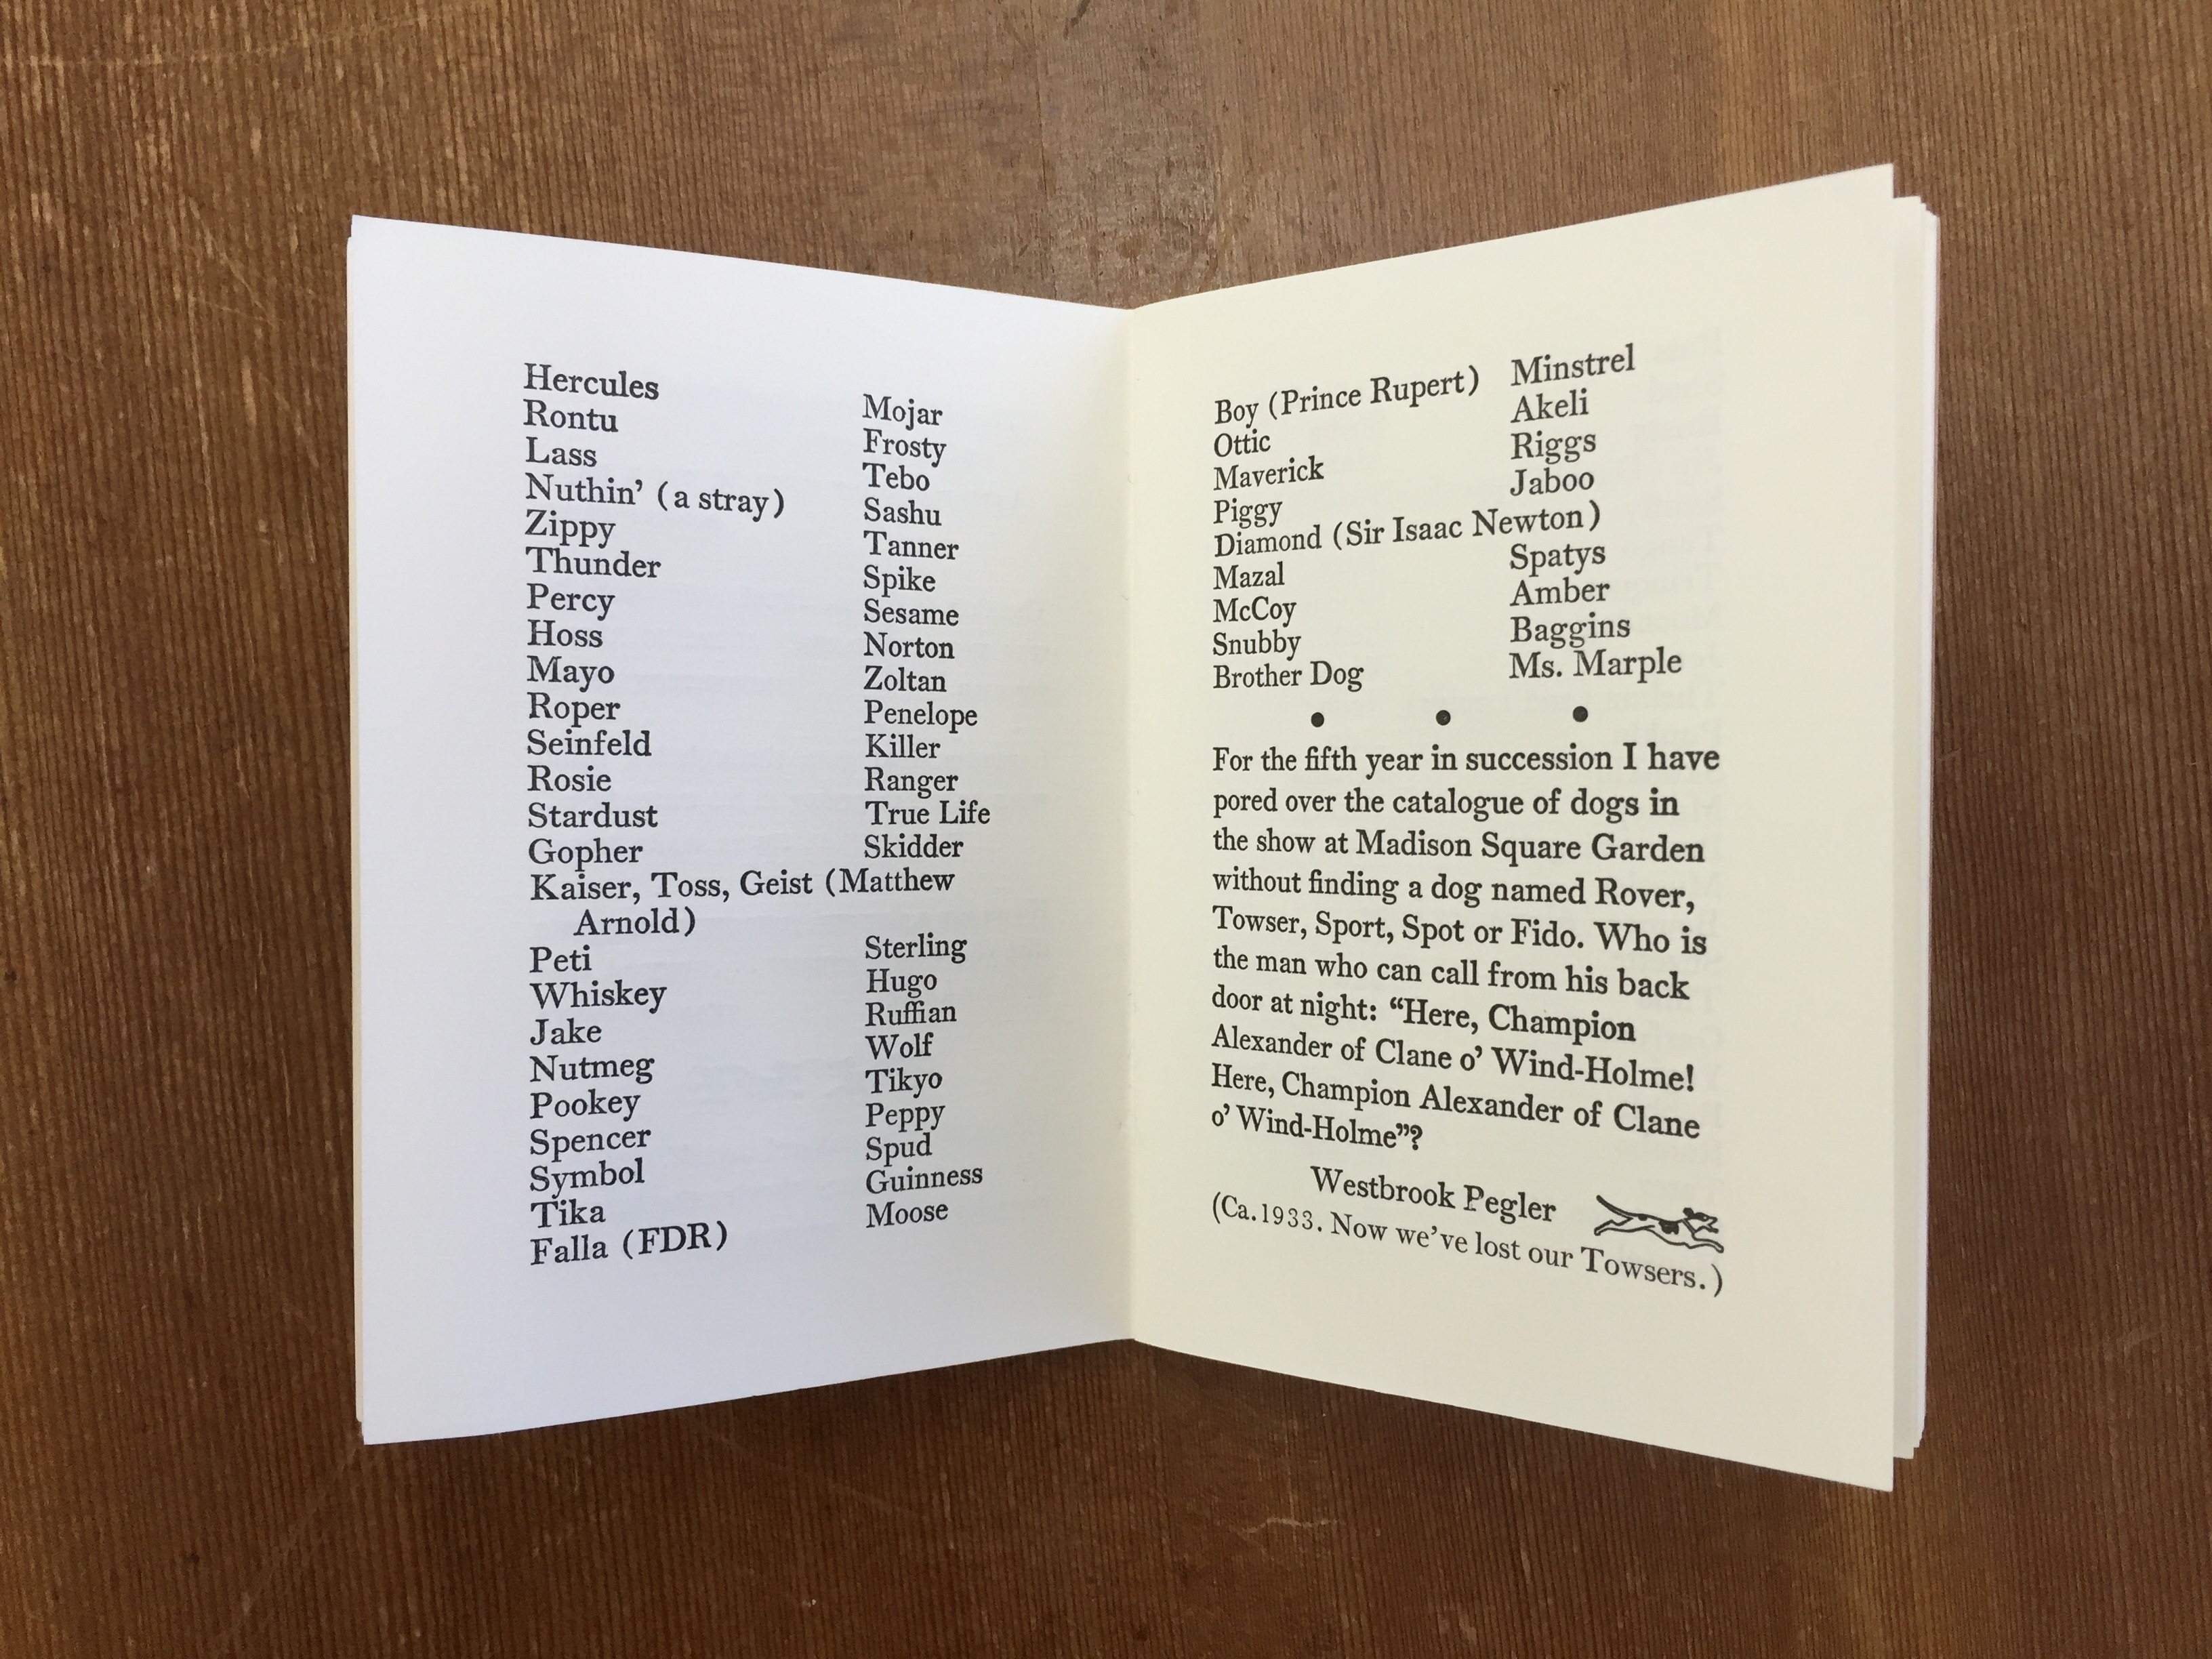 Hercules
Rontu
Lass
Nuthin’ (a stray)
Zippy
Thunder
Percy
Hoss
Mayo
Roper
Seinfeld
Rosie
Stardust
Gopher
Mojar
Frosty
Tebo
Sashu
Tanner
Spike
Sesame
Norton
Zoltan
Penelope
Killer
Ranger
True Life
Skidder
Kaiser, Toss, Geist (Matthew
Arnold)
Peti
Whiskey
Jake
Nutmeg
Pookey
Spencer
Symbol
Tika
Falla (FDR)
Sterling
Hugo
Ruffian
Wolf
Tikyo
Peppy
Spud
Guinness
Moose
Boy (Prince Rupert)
Ottic
Maverick
Piggy
Minstrel
Akeli
Riggs
Jaboo
Diamond (Sir Isaac Newton)
Mazal
McCoy
Snubby
Brother Dog
Spatys
Amber
Baggins
Ms. Marple
• • •
For the fifth year in succession I have
pored over the catalogue of dogs in
the show at Madison Square Garden
without finding a dog named Rover,
Towser, Sport, Spot or Fido. Who is
the man who can call from his back
door at night: “Here, Champion
Alexander of Clane o’ Wind-Holme!
Here, Champion Alexander of Clane
o’ Wind-Holme”?
Westbrook Pegler
(Ca.1933. Now we’ve lost our Towsers.)